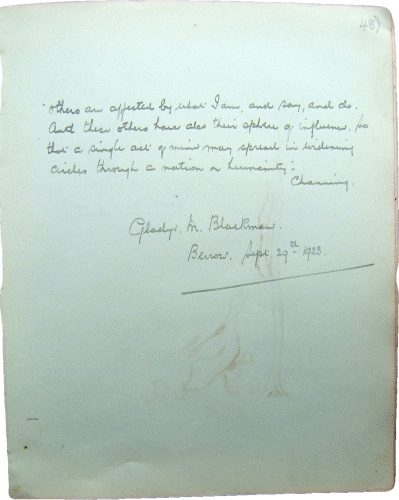 48)
"Others are affected by what I am, and say, and do.
And these others have also their sphere of influence. So
that a single act of mine may spread in widening
circles through a nation or humanity."
Channing.
Gladys. M. Blackman.
Berrow. Sept. 29th 1923.